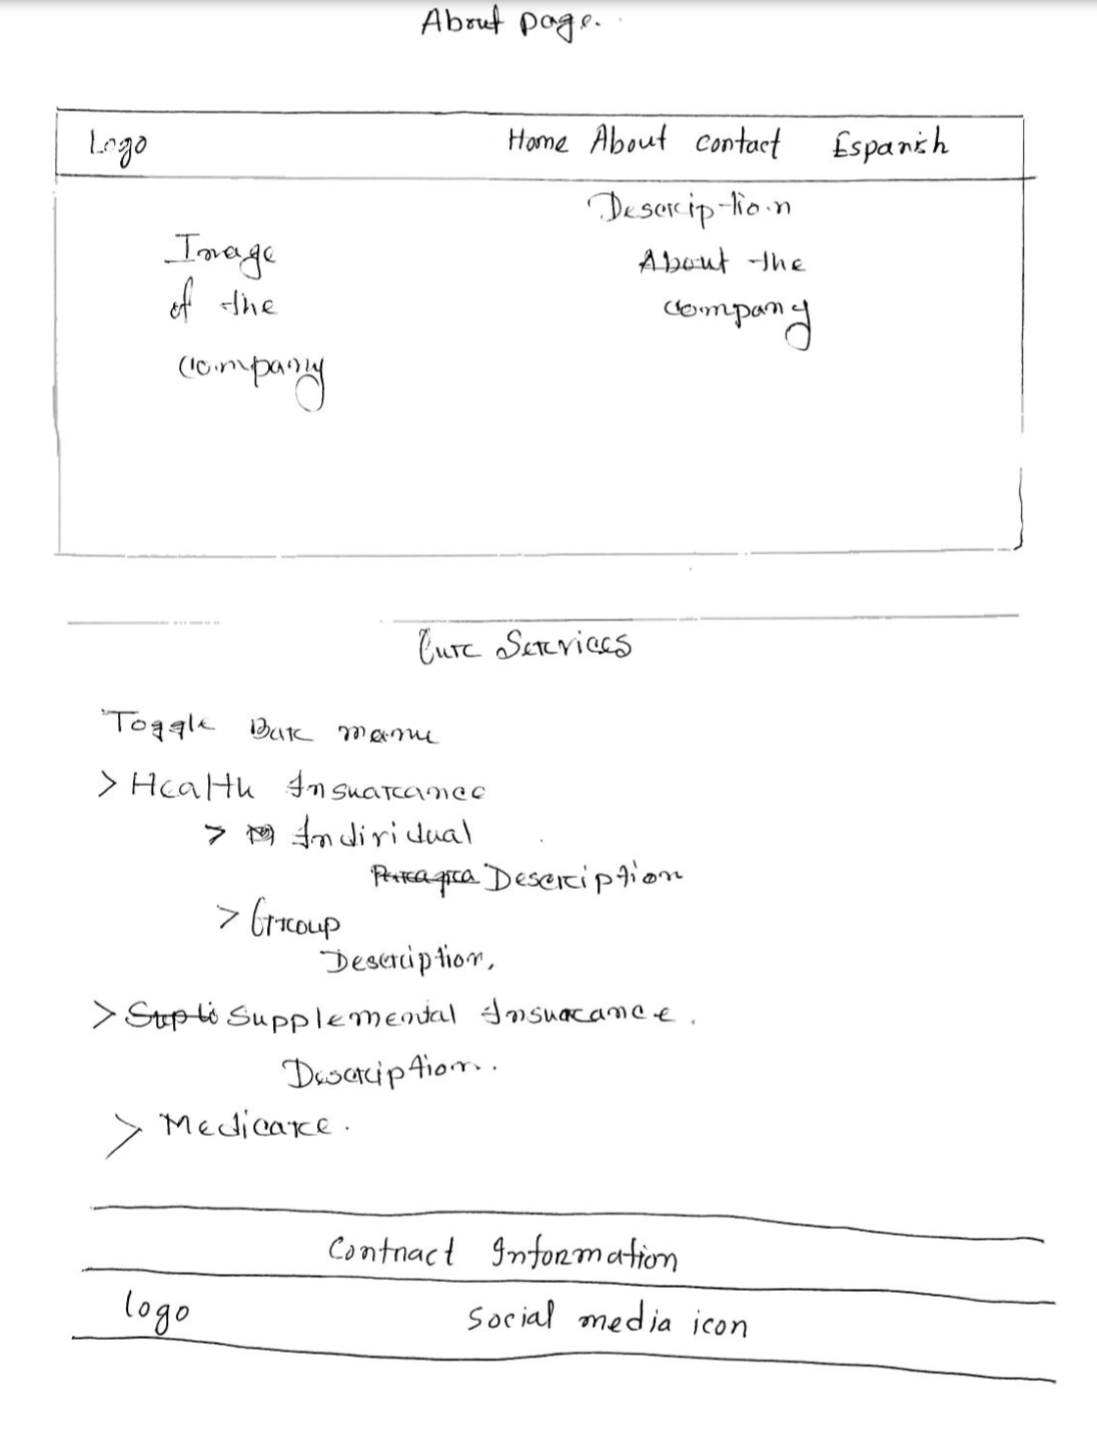 About page.
Logo Home About contact Espanish
Description
About the
company
Image
of the
company
Our Services
Toggle Bar menu
> Health Insurance
> Individual
Description
> Group
Description,
> Supplemental Insurance.
Description.
> Medicare.
Contract Information
logo Social media icon